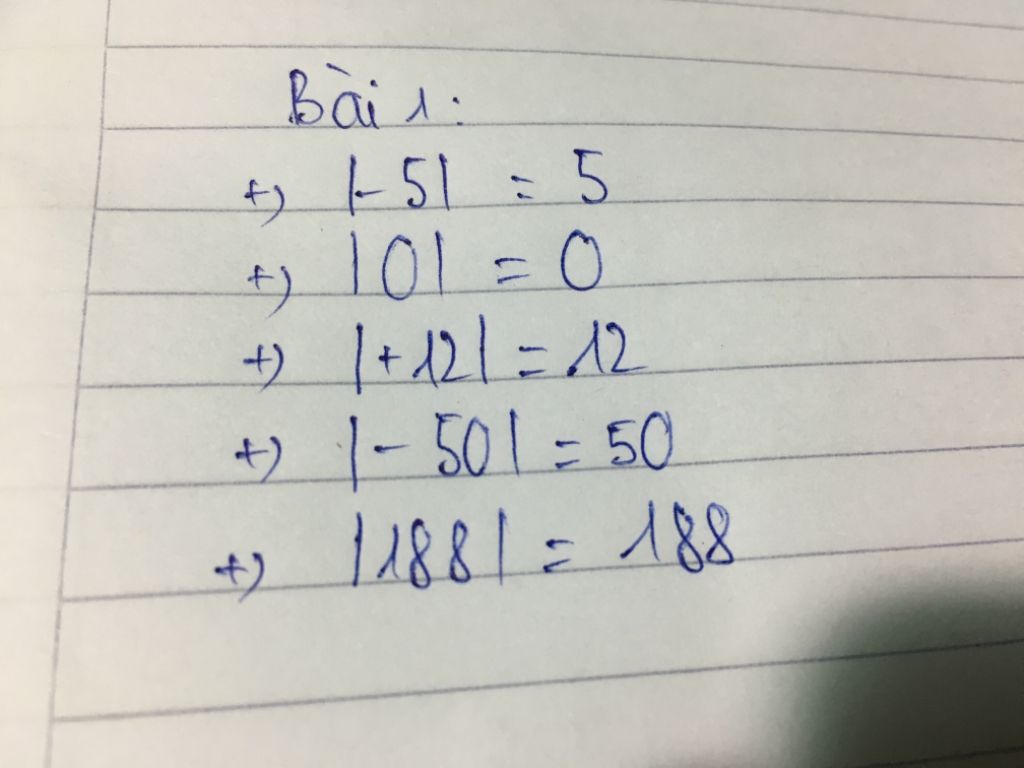 Bài 1:
+) |-5| = 5
+) |0| = 0
+) |+12| = 12
+) |-50| = 50
+) |188| = 188